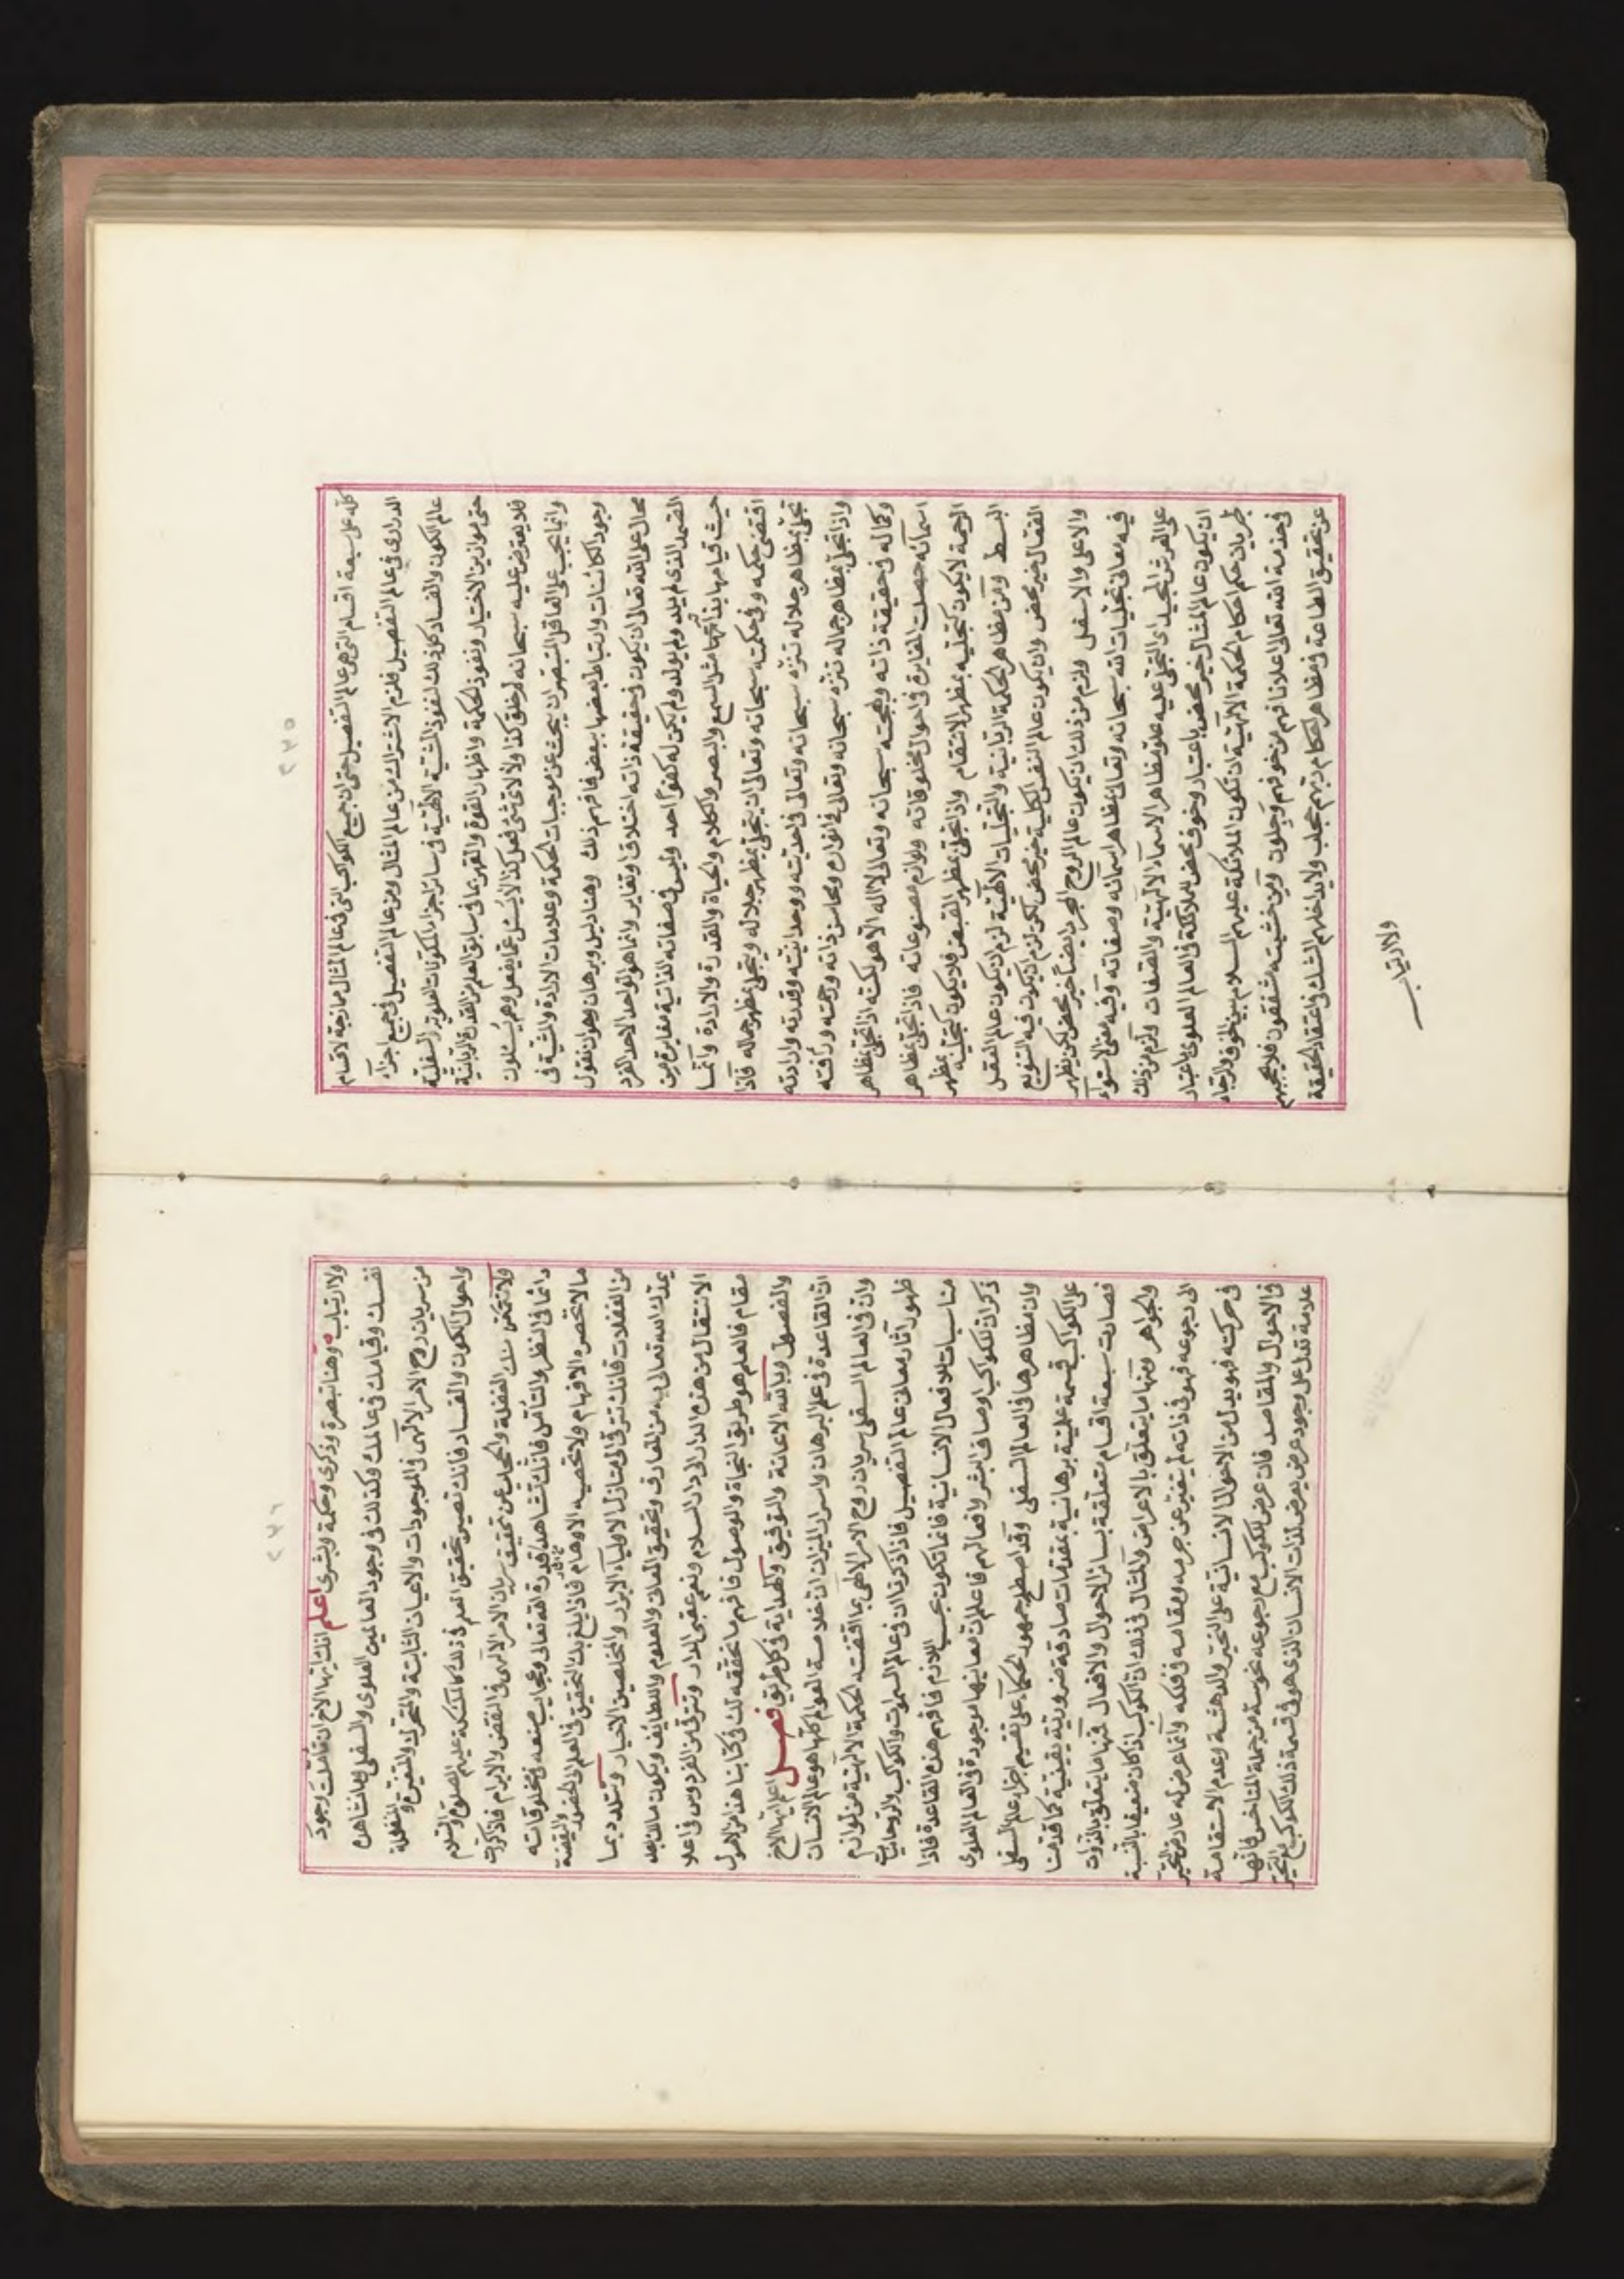 كله على سبعة اقسام التى هى عالم التفصيل حتى ان جميع الكواكب التى فى عالم المثال مازجة لاقسام
الدرارى فى عالم التفصيل فلزم الاشتراك من عالم المثال ومن عالم التفصيل فى جميع اجزآء
عالم الكون والفساد كل ذلك لنفوذ المشية الالهية فى سائر اجزاء المكونات العلوية والسفلية
حتى موازين الاختيار ونفوذ الحكمة واظهار القوة والقهر بما فى سابق العلم من القدرة الربانية
فلا يعترض عليه سبحانه لم خلق كذا ولا لاى شئ فعل كذا لا يسئل عما يفعل وهم يسئلون
وانما يجب على العاقل المتبصر ان يبحث عن موجبات الحكمة وعلامات الارادة والمشية فى
وجود الكائنات وارتباط بعضها ببعض فافهم ذلك وهنا دليل وبرهان وهو ان نقول
محال على الله تعالى ان يكون فى حقيقة ذاته اختلاف او تغاير وانما هو الواحد الاحد الفرد
الصمد الذى لم يلد ولم يولد ولم يكن له كفوًا احد وليس فى صفاته الذاتية مغايرة من
حيث قيامها بذاتها مثل السمع والبصر والكلام والحياة والقدرة والارادة وانما
اقتضى حكمه وفى حكمته سبحانه وتعالى ان يتجلى بمظهر جلاله ويتجلى بمظهر جماله فاذا
تجلى بمظاهر جلاله تنزه سبحانه وتعالى فى احديته ووحدانيته وقدرته وارادته
واذا تجلى بمظاهر جماله تنزه سبحانه وتعالى فى انواره ومحاسن ذاته ورحمته ورأفته
وكماله فى حقيقة ذاته وبهجته سبحانه وتعالى لا اله الا هو لكنه اذا تجلى بمظاهر
اسمآئه حصلت المغايرة فى احوال مخلوقاته ولوازم مصنوعاته فاذا تجلى بمظاهر
الرحمة لا يكون كتجليه بمظهر الانتقام واذا تجلى بمظهر القبض فلا يكون كتجليه بمظهر
البسط ومن مظاهر الحكمة الربانية والتجليات الالهية لزم ان يكون عالم العقل
الفعال خير محض وان يكون عالم النفس الكلية خير محض لكن لزم ان يكون فيه التنويع
والاعلى والاسفل ولزم من ذلك ان يكون عالم الروح المجرد ايضًا خير محض لكن يظهر
فيه معانى تجليات الله سبحانه وتعالى بمظاهر اسمآئه وصفاته وفيه معنى الاستوآء
على العرش المجيد اى التجلى عليه علو مظاهر الاسمآء الالهية والصفات ولزم من ذلك
ان يكون عالم المثال خير محض باعتبار وخوف محض للملائكة فى العالم العلوى باعتبار
طريان حكم احكام الحكمة الالهية ان تكون الملائكة عليهم السلام بين الخوف والرجاء
فى خدمة الله تعالى الا علانا فهم من خوفهم وجلون ومن خشيته مشفقون فلا يحجبهم
عن تحقيق الطاعة فى مظاهر احكام ربهم حجاب ولا يداخلهم الشك فى اعتقاد الحقيقة
ولا ارتياب
ولا ارتياب وهنا تبصرة وذكرى وحكمة وبشرى اعلم انك ايها الاخ ان تأملت وجود
نفسك وقيامك فى عالمك وكذلك فى وجود العالمين العلوى والسفلى وما تشاهده
من سريان روح الامر الالهى فى الموجودات والاعيان الثابتة والمتحركة والمتغيرة والمنفعلة
واحوال الكون والفساد فانك تصير بتحقيق العلم فى ذلك كالملائكة عليهم الصلوة والسلام
ولا تتمكن منك الغفلة والمحلات عن تحقيق سريان الامر الالهى فى النقض والابرام فاذا كنت
دائما فى النظر والتأمل فانك تشاهد قدرة الله تعالى وعجايب صنعه فى مخلوقاته
ما لا تحصره الافهام ولا تحصيه الاوهام فاذا بلغ بك التحقيق فى العلم والحضور واليقظة
من الغفلات فانك تترقى الى منازل الاوليآء الابرار والمخلصين الاخيار وتتلذذ بما
يمدك الله تعالى به من المعارف وتحقيق المعانى والعلوم واللطايف ويكون مالك بعد
الانتقال من هذه الدار الى دار السلام ونعم عقبى الدار وتترقى من الفردوس فى اعلا
مقام فالعلم هو طريق النجاة والوصول فافهم ما نحققه لك فى كتابنا هذا من الاصول
والفصول وبالله الاعانة والتوفيق والهداية فى كل طريق فصــل اعلم ايها الاخ
ان القاعدة فى علم البرهان واسرار الميزان ان خلاصة العوالم كلها هو عالم الانسان
وان فى العالم السفلى سريان روح الامر الالهى بما اقتضته الحكمة الالهية من لوازم
ظهور آثار معانى عالم التفصيل فاذا ذكرنا ان فى عالم السموات والكواكب والروحانيات
مناسبات للافعال الانسانية فانما تكون بحسب اللازم فافهم هذه القاعدة فاذا
ذكر ان للكواكب اوصاف البشر وافعالهم فاعلم ان معانيها موجودة فى العالم العلوى
وان مظاهرها فى العالم السفلى وقد اصطلح جمهور الحكمآء على تقسيم اجزاء عالم السفلى
على الكواكب قسمة علمية برهانية بمقدمات صادقة ضرورية يقينية كما قدمنا
فصارت سبعة اقسام متعلقة بسائر الاحوال والافعال فمنها ما يتعلق بالذوات
والجواهر ومنها ما يتعلق بالاعراض والمثال فى ذلك ان الكوكب اذا كان ضعيفا بالنسبة
الى رجوعه فهو فى ذاته لم يتغير عن جرمه ومقامه فى فلكه وانما عرض له عارض التحير
فى حركته فهو يدل من الاحوال الانسانية على التحير والدهشة وعدم الاستقامة
فى الاحوال والمقاصد فان عرض للكوكب مع رجوعه نحوسة من جملة المناحس فانها
علامة تدل على وجود عرض يعرض لذلك الانسان الذى هو فى قسمة ذلك الكوكب مع التحير